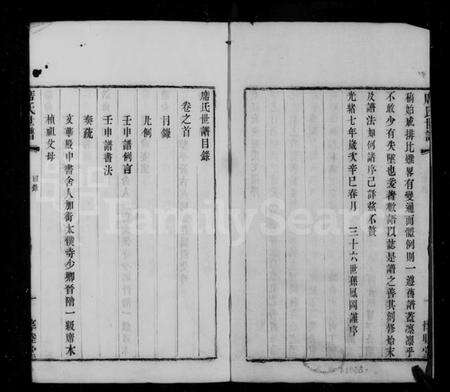 稿始咸排比橫界有變通而體例則一遵舊譜蓋凛凛乎
不敢少有失墜也爰書數語以誌是譜之善其創修始末
及譜法如例諸序已詳茲不贅
光緒七年歲次辛巳春月 三十六世孫 謹序
席氏世譜
席氏世譜目錄
卷之首
目錄
凡例
壬申譜例言
壬申譜書法
奏疏
文華殿中書舍人加銜太僕寺少卿晉階一級席本
楨祖父母
席氏世譜
目錄
一
FamilySearch